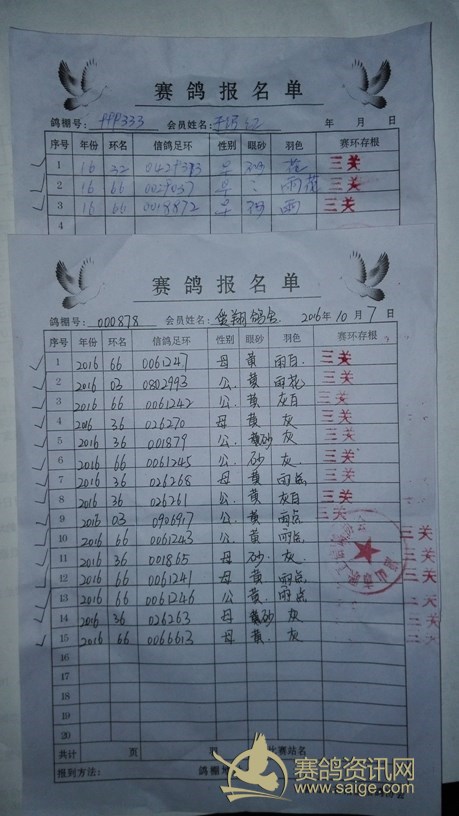 赛鸽报名单
鸽棚号: 会员姓名: 年 月 日
序号 年份 环名 信鸽足环 性别 眼砂 羽色 赛环存根
1 16 32 三关
2 16 66 雨花 三关
3 16 66 0018872 雨 三关
4
赛鸽报名单
鸽棚号: 000878 会员姓名: 翔鸽舍 2016年10月7日
序号 年份 环名 信鸽足环 性别 眼砂 羽色 赛环存根
1 2016 66 0061247 母 黄 雨白. 三关
2 2016 03 0802993 公. 黄 雨花. 三关
3 2016 66 0061242 公 黄 灰白 三关
4 2016 36 026270 母 黄 灰 三关
5 2016 36 001879 公 黄砂 灰 三关
6 2016 66 0061245 公 砂 灰. 三关
7 2016 36 026268 母 黄 雨点 三关
8 2016 36 026261 公 黄 灰白 三关
9 2016 03 0906917 公 黄 雨点 三关
10 2016 66 0061243 公. 黄 雨点 三关
11 2016 36 001865 母 砂. 灰 三关
12 2016 66 0061241 母 黄 雨点 三关
13 2016 66 0061246 公 黄. 雨点
14 2016 36 026263 母 黄砂 灰
15 2016 66 0066613 母 黄. 灰
16
17
18
19
20
共计 页 羽 比赛站名
报到方法: 鸽棚
赛鸽资讯网
www.saige.com